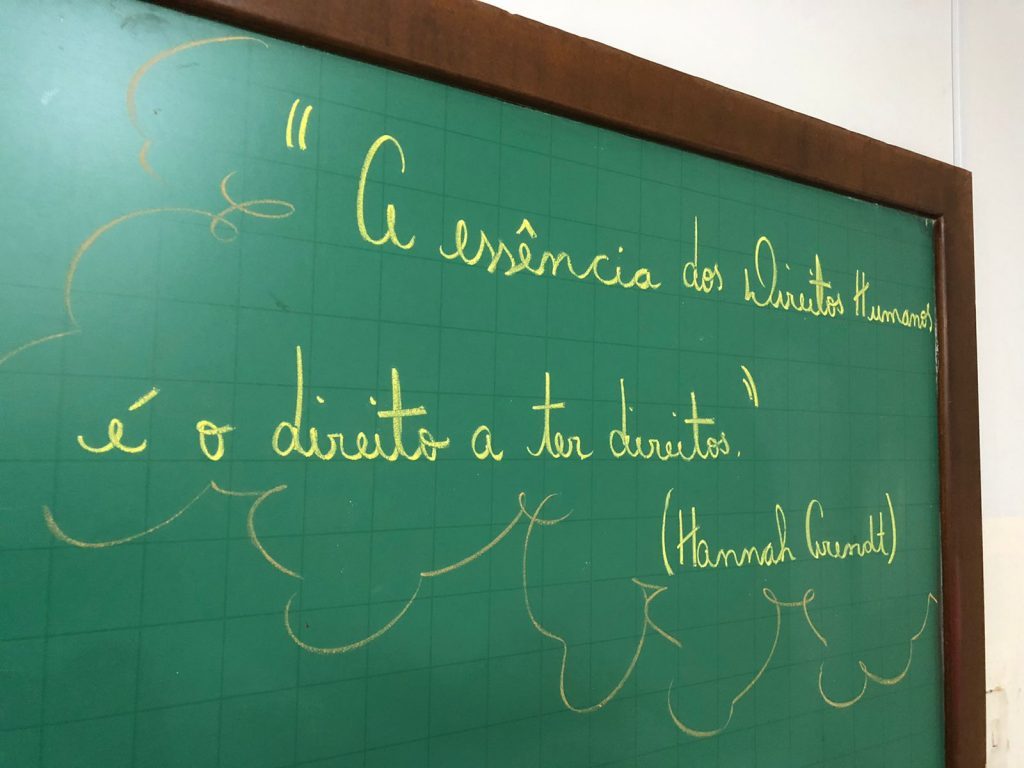 "A essência dos Direitos Humanos
é o direito a ter direitos."
(Hannah Arendt)